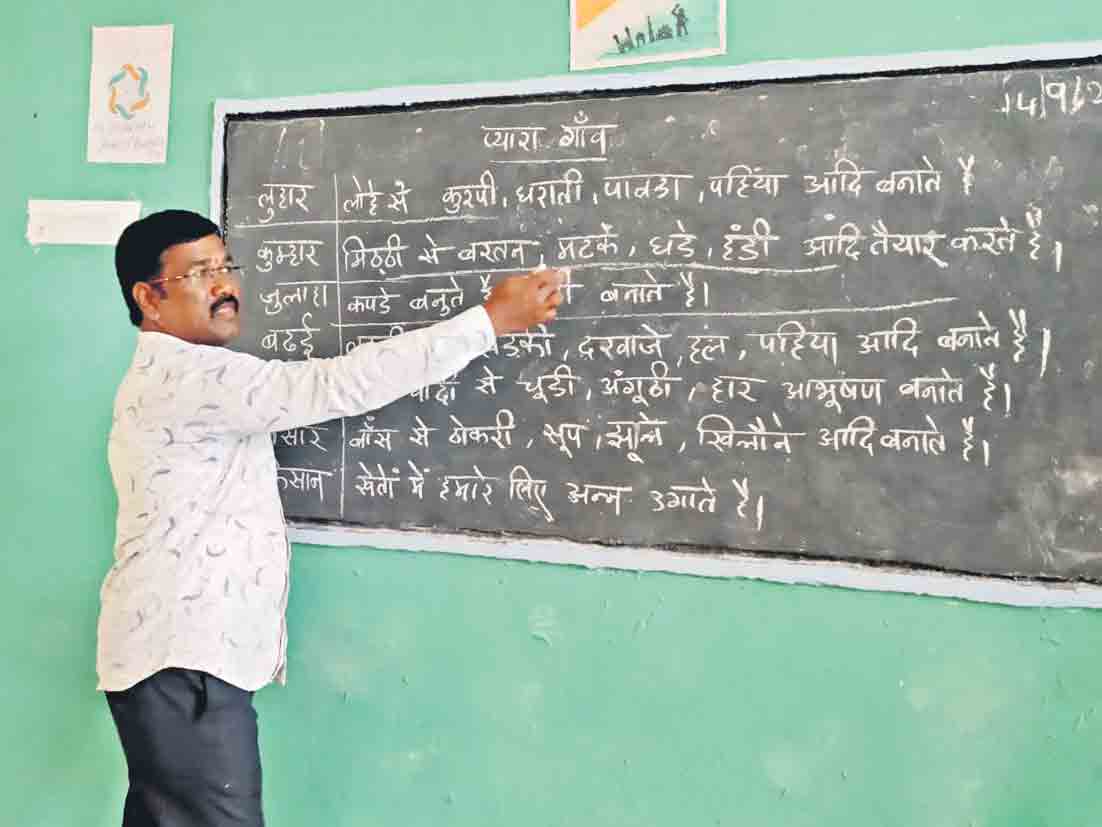 15/9/2
प्यारा गाँव
लुहार लोहे से कुरपी, घराती, पावडा, पहिंया आदि बनाते है
कुम्हार मिठ्ठी से बरतन, मटकें, घडे, हंडी आदि तैयार करते है।
जुलाहा कपडे बनुते है बनाते है।
बढई दरवाजे, हल, पहिया आदि बनाते है।
से चूडी, अंगूठी, हार आभूषण बनाते है।
बाँस से टोकरी, सूप, झोले, खिलौने आदि बनाते है।
खेतों में हमारे लिए अन्न उगाते है।